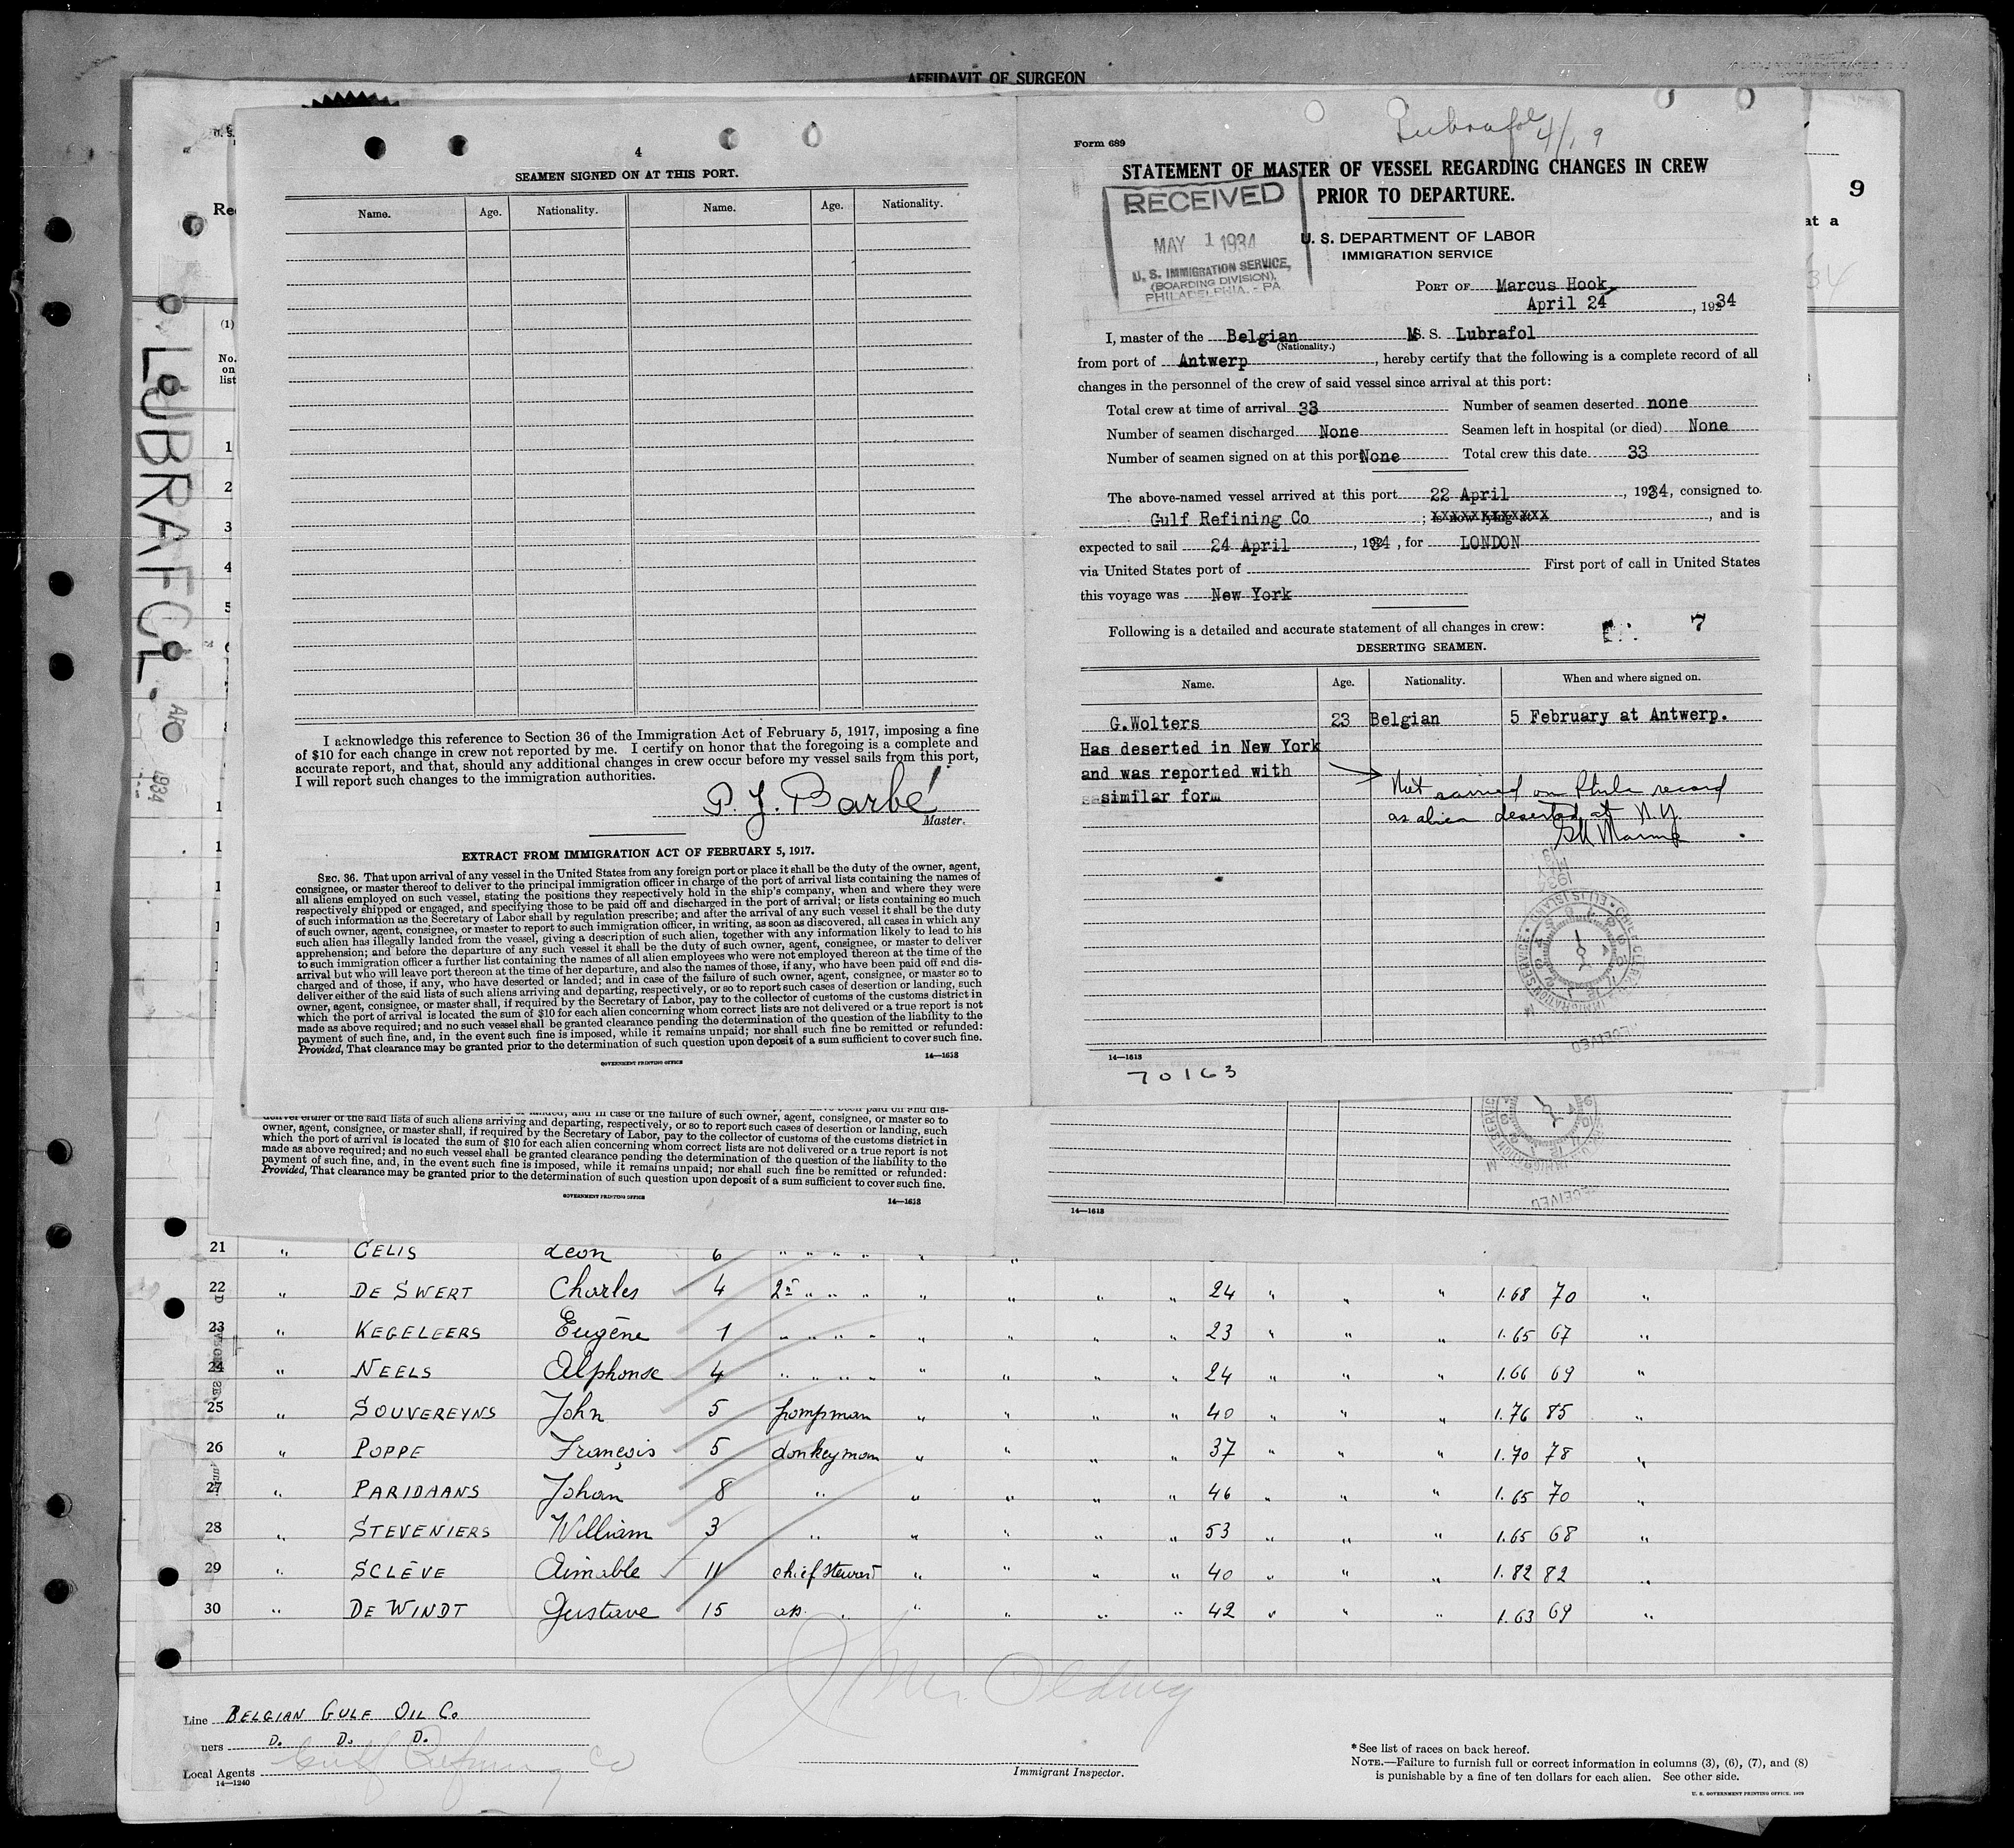 AFFIDAVIT OF SURGEON
9
at a
(1)
No.
on
list
LUBRAFOL.
1934
4
SEAMEN SIGNED ON AT THIS PORT.
Name. Age. Nationality. Name. Age. Nationality.
I acknowledge this reference to Section 36 of the Immigration Act of February 5, 1917, imposing a fine
of $10 for each change in crew not reported by me. I certify on honor that the foregoing is a complete and
accurate report, and that, should any additional changes in crew occur before my vessel sails from this port,
I will report such changes to the immigration authorities.
P. J. Barbé
Master.
EXTRACT FROM IMMIGRATION ACT OF FEBRUARY 5, 1917.
SEC. 36. That upon arrival of any vessel in the United States from any foreign port or place it shall be the duty of the owner, agent,
consignee, or master thereof to deliver to the principal immigration officer in charge of the port of arrival lists containing the names of
all aliens employed on such vessel, stating the positions they respectively hold in the ship's company, when and where they were
respectively shipped or engaged, and specifying those to be paid off and discharged in the port of arrival; or lists containing so much
of such information as the Secretary of Labor shall by regulation prescribe; and after the arrival of any such vessel it shall be the duty
of such owner, agent, consignee, or master to report to such immigration officer, in writing, as soon as discovered, all cases in which any
such alien has illegally landed from the vessel, giving a description of such alien, together with any information likely to lead to his
apprehension; and before the departure of any such vessel it shall be the duty of such owner, agent, consignee, or master to deliver
to such immigration officer a further list containing the names of all alien employees who were not employed thereon at the time of the
arrival but who will leave port thereon at the time of her departure, and also the names of those, if any, who have been paid off and dis-
charged and of those, if any, who have deserted or landed; and in case of the failure of such owner, agent, consignee, or master so to
deliver either of the said lists of such aliens arriving and departing, respectively, or so to report such cases of desertion or landing, such
owner, agent, consignee, or master shall, if required by the Secretary of Labor, pay to the collector of customs of the customs district in
which the port of arrival is located the sum of $10 for each alien concerning whom correct lists are not delivered or a true report is not
made as above required; and no such vessel shall be granted clearance pending the determination of the question of the liability to the
payment of such fine, and, in the event such fine is imposed, while it remains unpaid; nor shall such fine be remitted or refunded:
Provided, That clearance may be granted prior to the determination of such question upon deposit of a sum sufficient to cover such fine.
GOVERNMENT PRINTING OFFICE 14—1618
Lubrafol 4/19
Form 689
STATEMENT OF MASTER OF VESSEL REGARDING CHANGES IN CREW
PRIOR TO DEPARTURE.
RECEIVED
MAY 1 1934
U. S. IMMIGRATION SERVICE,
(BOARDING DIVISION),
PHILADELPHIA, - PA.
U. S. DEPARTMENT OF LABOR
IMMIGRATION SERVICE
PORT OF Marcus Hook,
April 24, 1934
I, master of the Belgian M S. S. Lubrafol
(Nationality.)
from port of Antwerp, hereby certify that the following is a complete record of all
changes in the personnel of the crew of said vessel since arrival at this port:
Total crew at time of arrival 33 Number of seamen deserted none
Number of seamen discharged None Seamen left in hospital (or died) None
Number of seamen signed on at this port None Total crew this date 33
The above-named vessel arrived at this port 22 April, 1934, consigned to
Gulf Refining Co ; is now lying at , and is
expected to sail 24 April, 1934, for LONDON
via United States port of First port of call in United States
this voyage was New York
Following is a detailed and accurate statement of all changes in crew: 7
DESERTING SEAMEN.
Name. Age. Nationality. When and where signed on.
G.Wolters 23 Belgian 5 February at Antwerp.
Has deserted in New York
and was reported with
similar form
Not carried on Phila record
as alien deserted at N.Y.
14—1618
70163
deliver either of the said lists of such aliens arriving and departing, respectively, or so to report such cases of desertion or landing, such
owner, agent, consignee, or master shall, if required by the Secretary of Labor, pay to the collector of customs of the customs district in
which the port of arrival is located the sum of $10 for each alien concerning whom correct lists are not delivered or a true report is not
made as above required; and no such vessel shall be granted clearance pending the determination of the question of the liability to the
payment of such fine, and, in the event such fine is imposed, while it remains unpaid; nor shall such fine be remitted or refunded:
Provided, That clearance may be granted prior to the determination of such question upon deposit of a sum sufficient to cover such fine.
GOVERNMENT PRINTING OFFICE 14—1618
14—1618
21 " CELIS Leon 6 " " " " " "
22 " DE SWERT Charles 4 2d " " " " " " " 24 " " " 1.68 70 "
23 " KEGELEERS Eugène 1 " " " " " " " " 23 " " " 1.65 67 "
24 " NEELS Alphonse 4 " " " " " " " " 24 " " " 1.66 69 "
25 " SOUVEREYNS John 5 pompman " " " " 40 " " " 1.76 85 "
26 " POPPE François 5 donkeyman " " " " 37 " " " 1.70 78 "
27 " PARIDAANS Johan 8 " " " " " 46 " " " 1.65 70 "
28 " STEVENIERS William 3 " " " " " 53 " " " 1.65 68 "
29 " SCLÈVE Aimable 11 chief steward " " " " 40 " " " 1.82 82 "
30 " DE WINDT Gustave 15 as. " " " " " 42 " " " 1.63 69 "
Line BELGIAN GULF OIL Co
Owners D. D. D.
Local Agents Gulf Refining Co
14—1240
Immigrant Inspector.
* See list of races on back hereof.
NOTE.—Failure to furnish full or correct information in columns (3), (6), (7), and (8)
is punishable by a fine of ten dollars for each alien. See other side.
U. S. GOVERNMENT PRINTING OFFICE. 1929